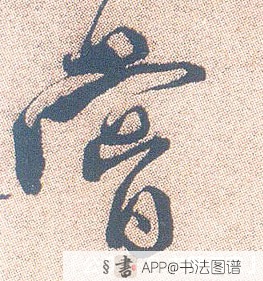 嘗
§書 APP@书法图谱